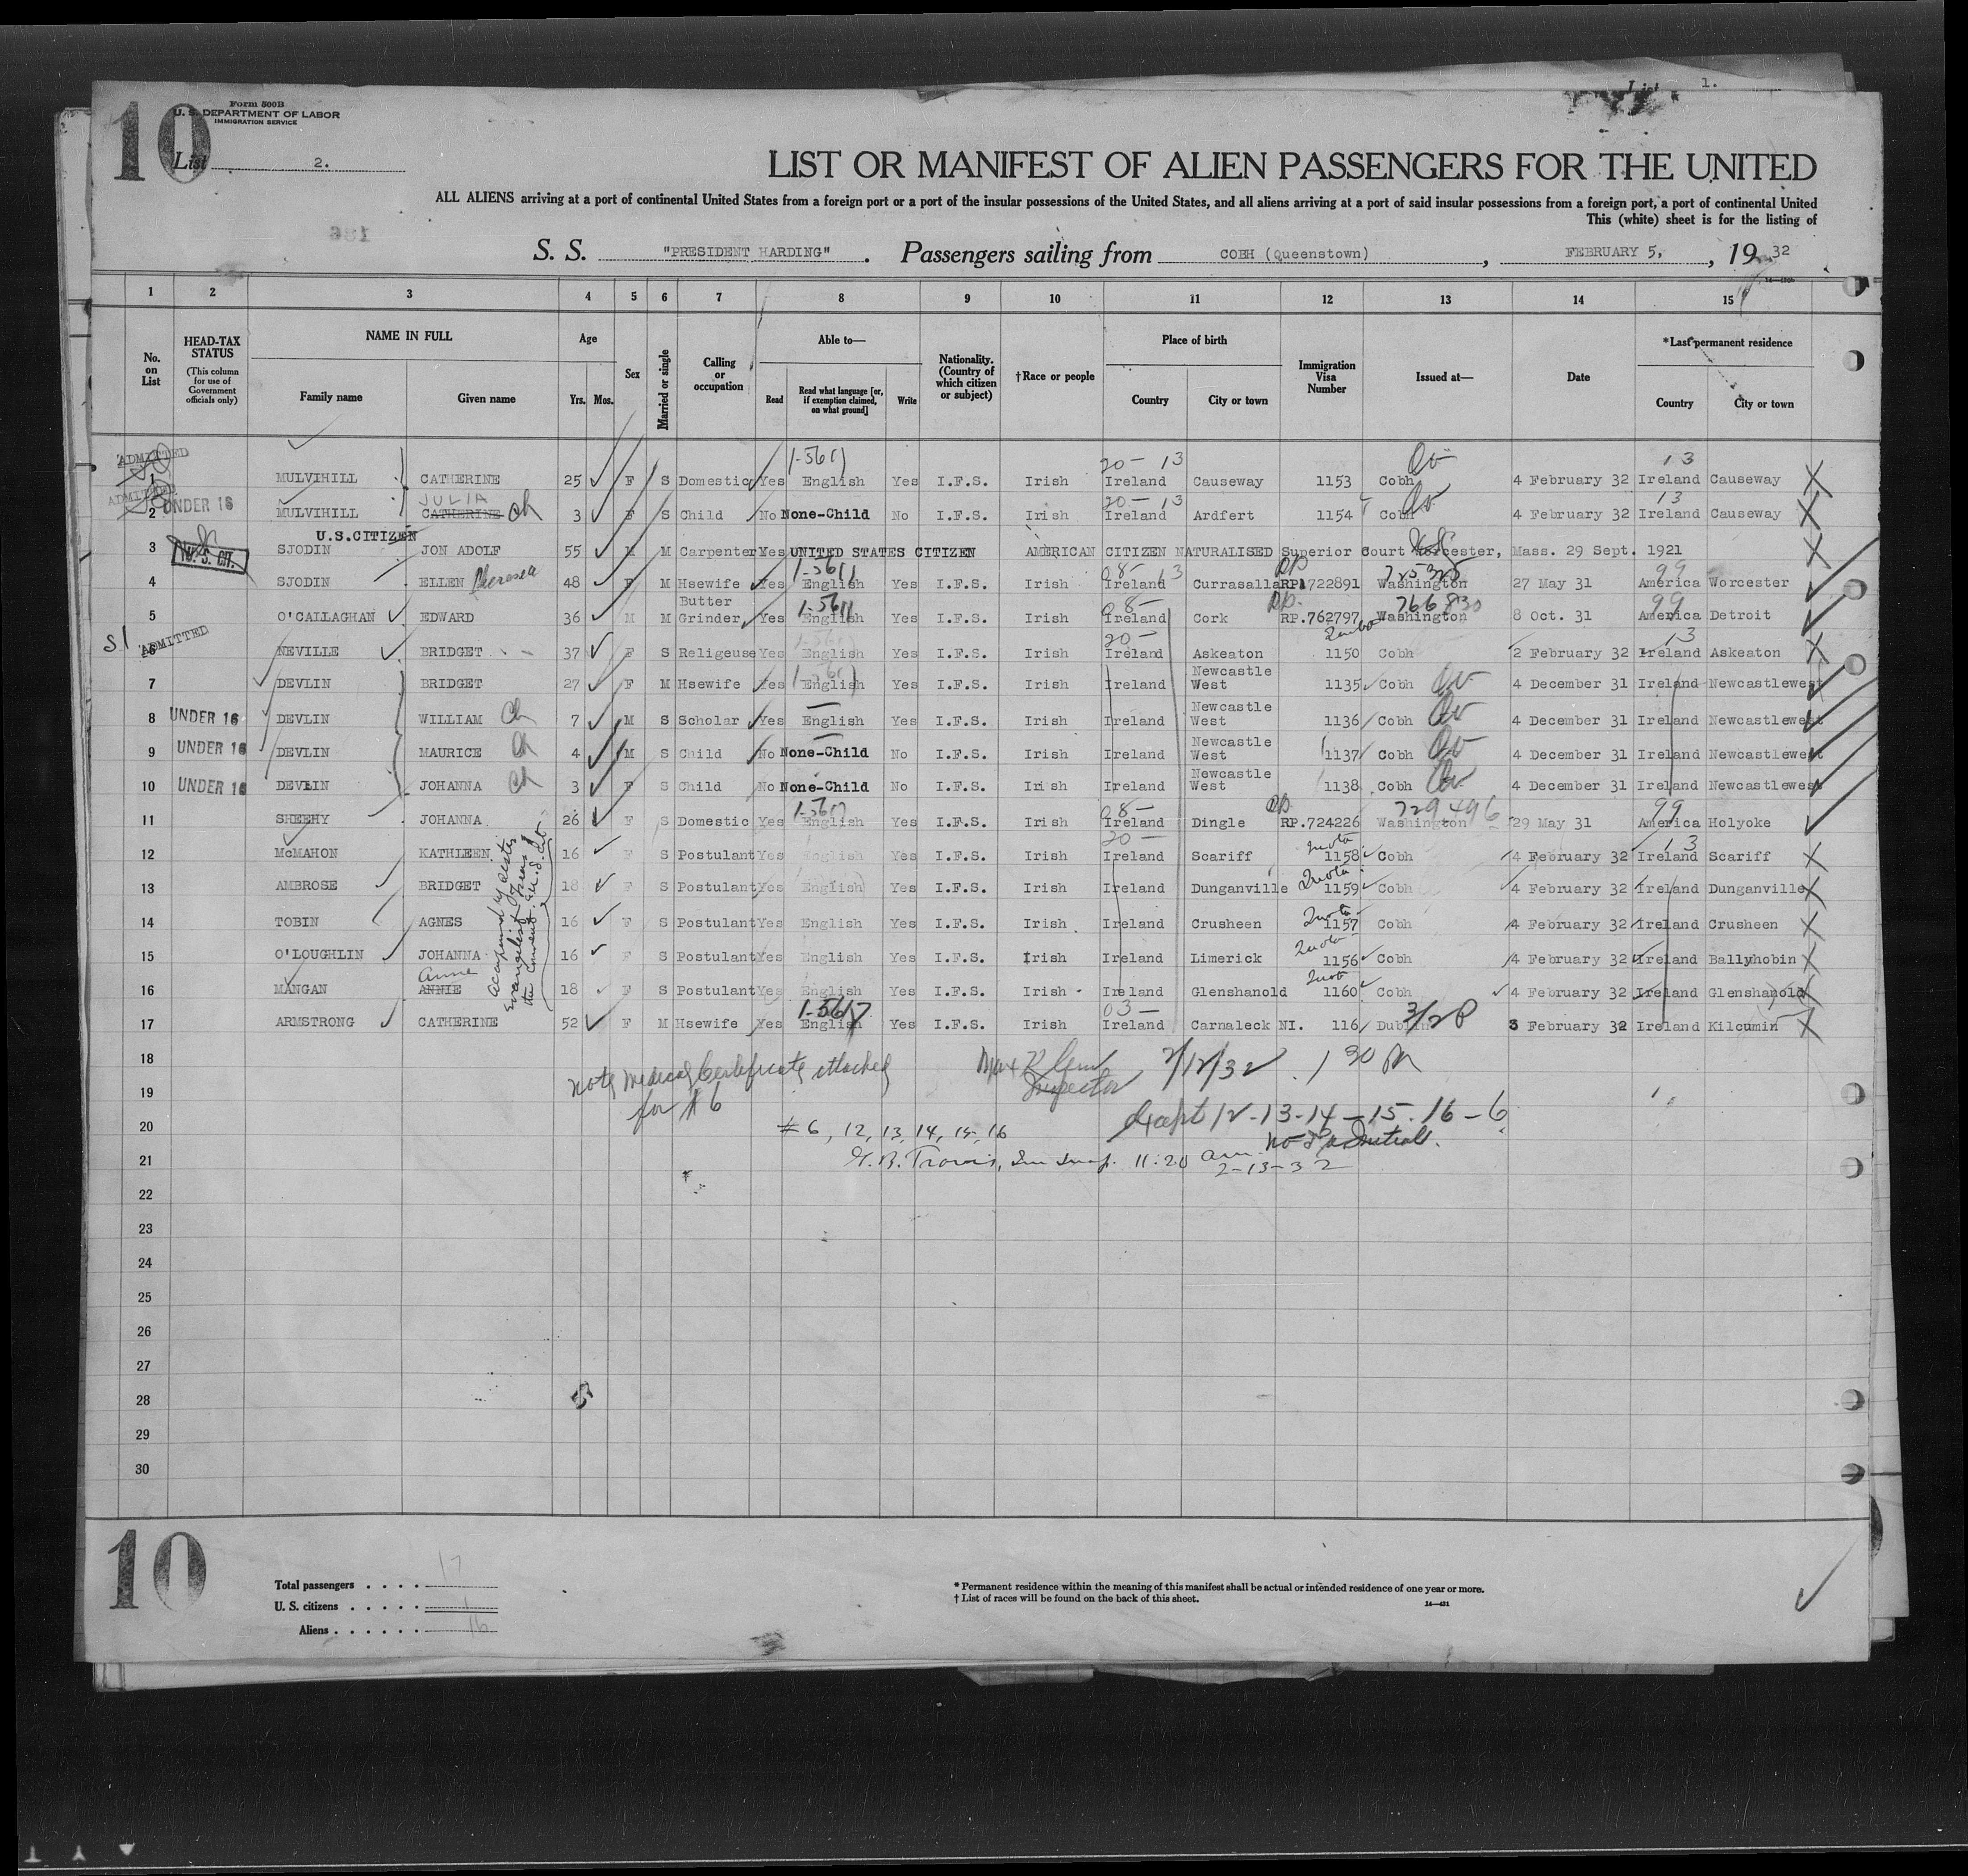 List 1.
10
Form 500B
U. S. DEPARTMENT OF LABOR
IMMIGRATION SERVICE
List 2.
LIST OR MANIFEST OF ALIEN PASSENGERS FOR THE UNITED
ALL ALIENS arriving at a port of continental United States from a foreign port or a port of the insular possessions of the United States, and all aliens arriving at a port of said insular possessions from a foreign port, a port of continental United
This (white) sheet is for the listing of
S. S. "PRESIDENT HARDING". Passengers sailing from COBH (Queenstown), FEBRUARY 5, 19 32
1 2 3 4 5 6 7 8 9 10 11 12 13 14 15
No. on List
HEAD-TAX STATUS
(This column for use of Government officials only)
NAME IN FULL
Family name Given name
Age
Yrs. Mos.
Sex
Married or single
Calling or occupation
Able to—
Read
Read what language [or, if exemption claimed, on what ground]
Write
Nationality. (Country of which citizen or subject)
†Race or people
Place of birth
Country City or town
Immigration Visa Number
Issued at—
Date
*Last permanent residence
Country City or town
ADMITTED 20- 13 13
1 MULVIHILL CATHERINE 25 F S Domestic Yes English Yes I.F.S. Irish Ireland Causeway 1153 Cobh 4 February 32 Ireland Causeway
ADMITTED JULIA 20- 13 13
2 UNDER 16 MULVIHILL CATHERINE Ch 3 F S Child No None-Child No I.F.S. Irish Ireland Ardfert 1154 Cobh 4 February 32 Ireland Causeway
U.S.CITIZEN
3 U. S. CIT. SJODIN JON ADOLF 55 M M Carpenter Yes UNITED STATES CITIZEN AMERICAN CITIZEN NATURALISED Superior Court Worcester, Mass. 29 Sept. 1921
08- 13 725328 99
4 SJODIN ELLEN Theresa 48 F M Hsewife Yes English Yes I.F.S. Irish Ireland Currasalla RP.722891 Washington 27 May 31 America Worcester
08- 766830 99
5 O'CALLAGHAN EDWARD 36 M M Butter Grinder Yes English Yes I.F.S. Irish Ireland Cork RP.762797 Washington 8 Oct. 31 America Detroit
SI ADMITTED 20- 13
6 NEVILLE BRIDGET 37 F S Religeuse Yes English Yes I.F.S. Irish Ireland Askeaton 1150 Cobh 2 February 32 Ireland Askeaton
7 DEVLIN BRIDGET 27 F M Hsewife Yes English Yes I.F.S. Irish Ireland Newcastle West 1135 Cobh 4 December 31 Ireland Newcastlewest
8 UNDER 16 DEVLIN WILLIAM Ch 7 M S Scholar Yes English Yes I.F.S. Irish Ireland Newcastle West 1136 Cobh 4 December 31 Ireland Newcastlewest
9 UNDER 16 DEVLIN MAURICE Ch 4 M S Child No None-Child No I.F.S. Irish Ireland Newcastle West 1137 Cobh 4 December 31 Ireland Newcastlewest
10 UNDER 16 DEVLIN JOHANNA Ch 3 F S Child No None-Child No I.F.S. Irish Ireland Newcastle West 1138 Cobh 4 December 31 Ireland Newcastlewest
08- 729496 99
11 SHEEHY JOHANNA 26 F S Domestic Yes English Yes I.F.S. Irish Ireland Dingle RP.724226 Washington 29 May 31 America Holyoke
20- Quota 13
12 McMAHON KATHLEEN 16 F S Postulant Yes English Yes I.F.S. Irish Ireland Scariff 1158 Cobh 4 February 32 Ireland Scariff
Quota
13 AMBROSE BRIDGET 18 F S Postulant Yes English Yes I.F.S. Irish Ireland Dunganville 1159 Cobh 4 February 32 Ireland Dunganville
Quota
14 TOBIN AGNES 16 F S Postulant Yes English Yes I.F.S. Irish Ireland Crusheen 1157 Cobh 4 February 32 Ireland Crusheen
Quota
15 O'LOUGHLIN JOHANNA 16 F S Postulant Yes English Yes I.F.S. Irish Ireland Limerick 1156 Cobh 4 February 32 Ireland Ballyhobin
Anne
16 MANGAN ANNIE 18 F S Postulant Yes English Yes I.F.S. Irish Ireland Glenshanold 1160 Cobh 4 February 32 Ireland Glenshanold
03-
17 ARMSTRONG CATHERINE 52 F M Hsewife Yes English Yes I.F.S. Irish Ireland Carnaleck NI. 116 Dublin 3 February 32 Ireland Kilcumin
18
note Medical Certificate attached
for # 6
Inspector 2/12/32 1 30 PM
19
Except 12-13-14-15-16-6
20
# 6, 12, 13, 14, 15, 16
21
11:20 am 2-13-32
22
23
24
25
26
27
28
29
30
10
Total passengers 17
U. S. citizens 1
Aliens 16
* Permanent residence within the meaning of this manifest shall be actual or intended residence of one year or more.
† List of races will be found on the back of this sheet.